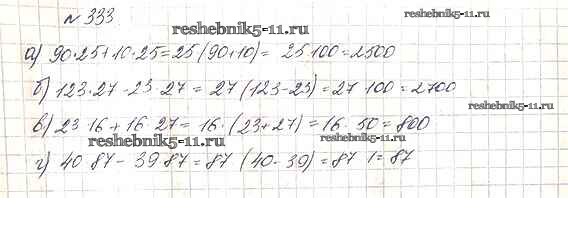 № 333
reshebnik5-11.ru
reshebnik5-11.ru
а) 90·25+10·25=25(90+10)= 25·100=2500
б) 123·27-23·27= 27(123-23)=27·100=2700
reshebnik5-11.ru
в) 23 16+16 27= 16·(23+27)=16·50=800
reshebnik5-11.ru
reshebnik5-11.ru
г) 40 87-39 87=87 (40-39)=87 1=87
reshebnik5-11.ru